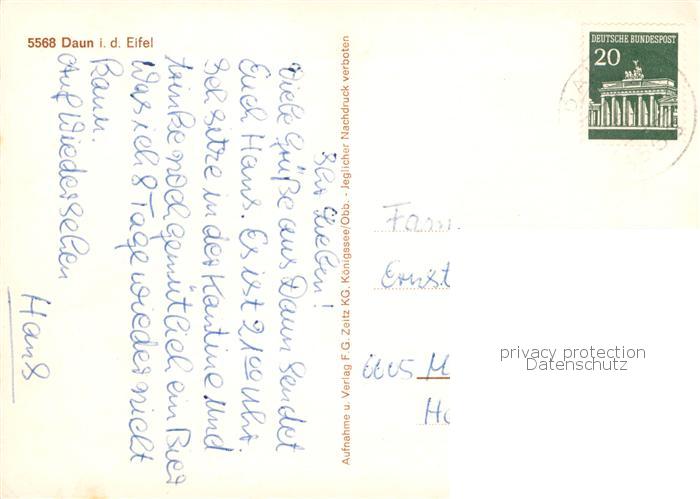 5568 Daun i. d. Eifel
Ihr Lieben!
Viele Grüße aus Daun sendet
Euch Hans. Es ist 21 00 Uhr.
Ich sitze in der Kantine und
trinke noch gemütlich ein Bier
Was ich 8 Tage wieder nicht
kann.
Auf Wiedersehen
Hans
Aufnahme u. Verlag F. G. Zeitz KG. Königssee/Obb. - Jeglicher Nachdruck verboten
DEUTSCHE BUNDESPOST
20
Fam.
Ernst
privacy protection
Datenschutz